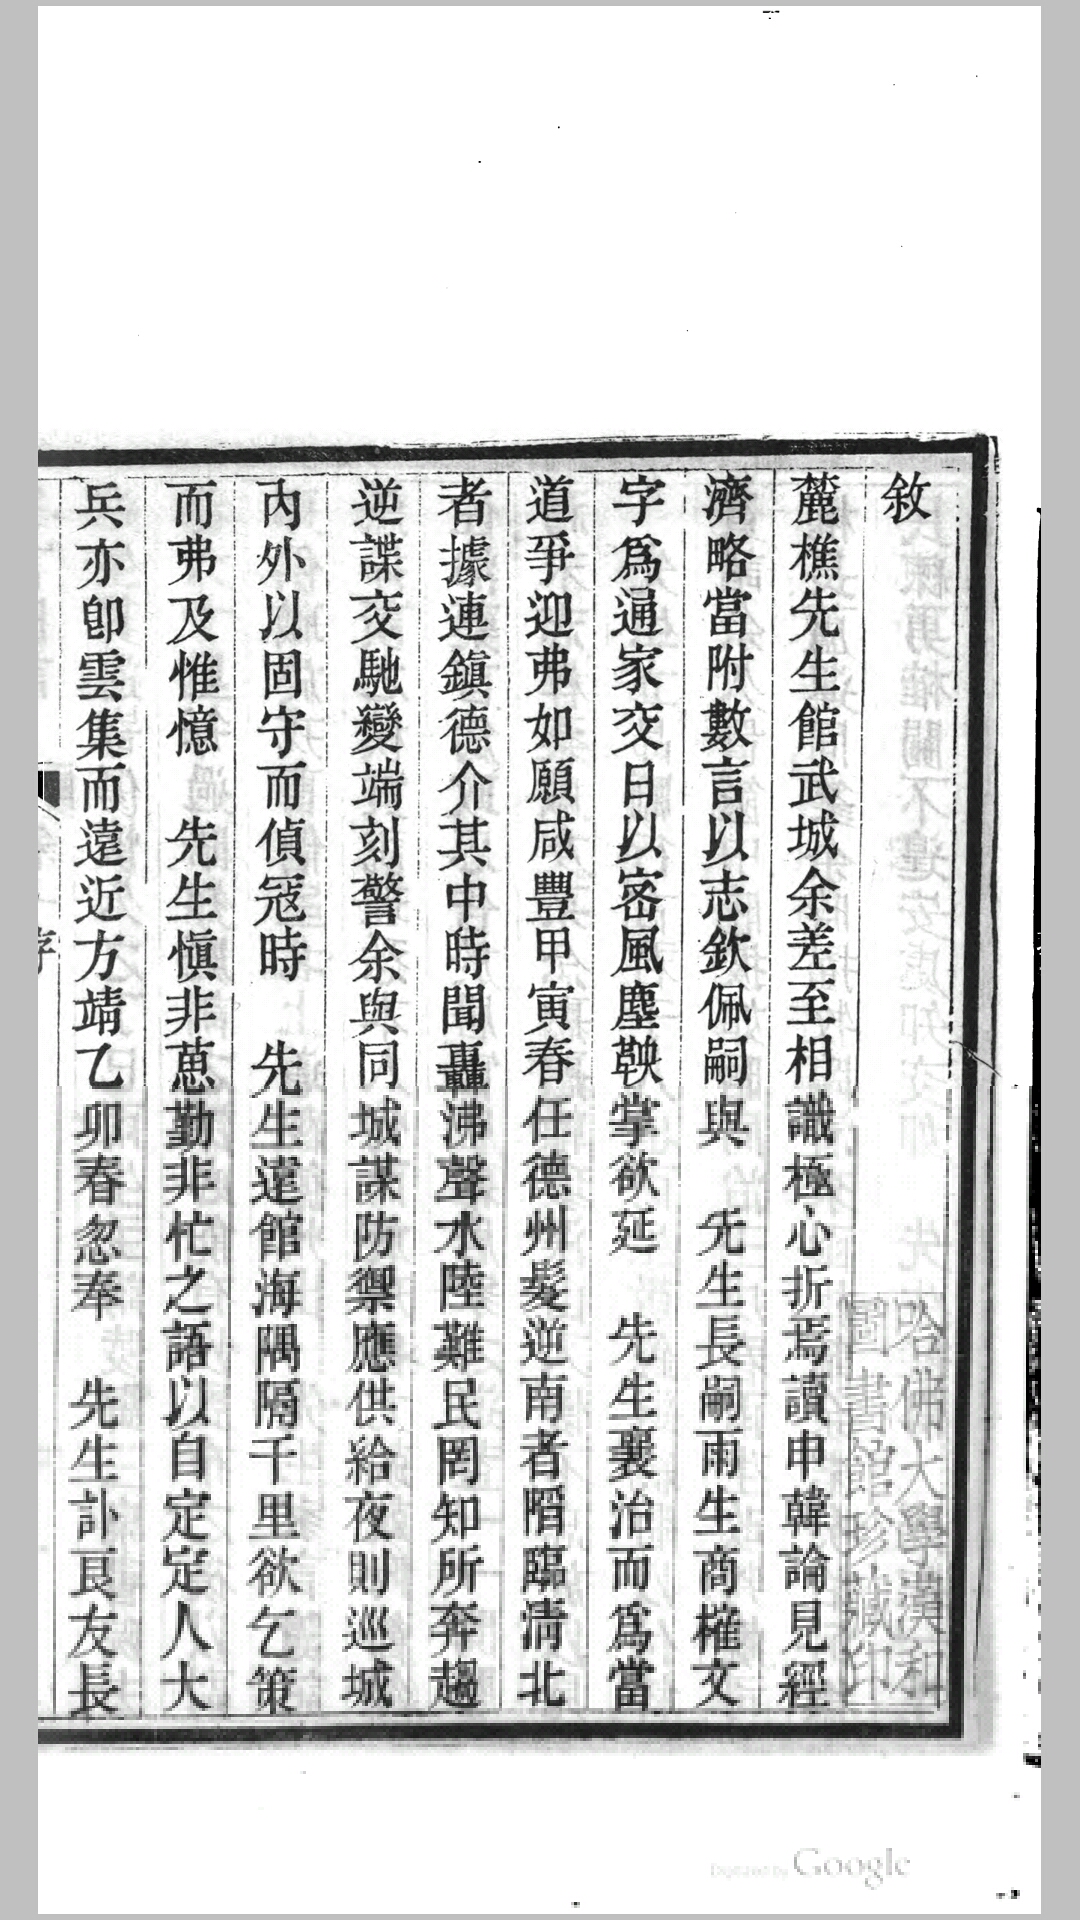 敘
麓樵先生館武城余差至相識極心折焉讀申韓論見經
濟略當附數言以志欽佩嗣與　先生長嗣雨生商榷文
字為通家交日以密風塵鞅掌欲延　先生襄治而為當
道爭迎弗如願咸豐甲寅春任德州髮逆南者陷臨清北
者據連鎮德介其中時聞轟沸聲水陸難民罔知所奔趨
逆諜交馳變端刻警余與同城謀防禦應供給夜則巡城
內外以固守而偵冦時　先生遠館海隅隔千里欲乞策
而弗及惟憶　先生慎非葸勤非忙之語以自定定人大
兵亦卽雲集而遠近方靖乙卯春忽奉　先生訃良友長
序
哈佛大學漢和
圖書館珍藏印
Digitized by Google